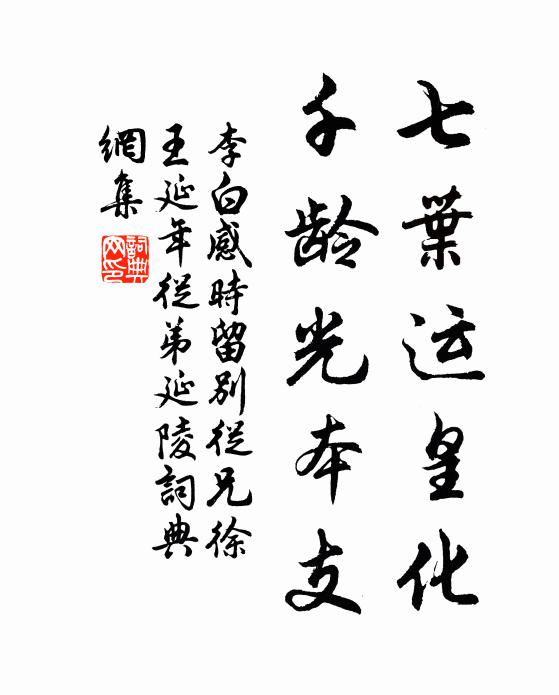 七葉运皇化
千龄光本支
李白感時留別從兄徐
王延年從弟延陵詞典
網集
詞典网印